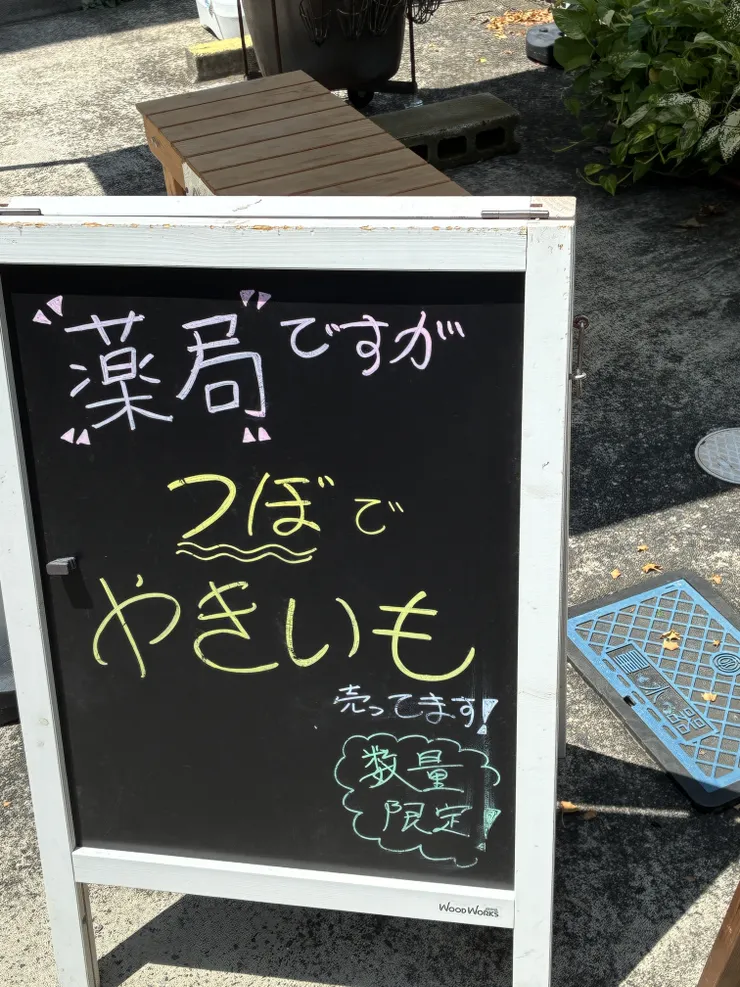 薬局ですが
つぼで
やきいも
売ってます!
数量
限定!
WOODWORKS
量水器